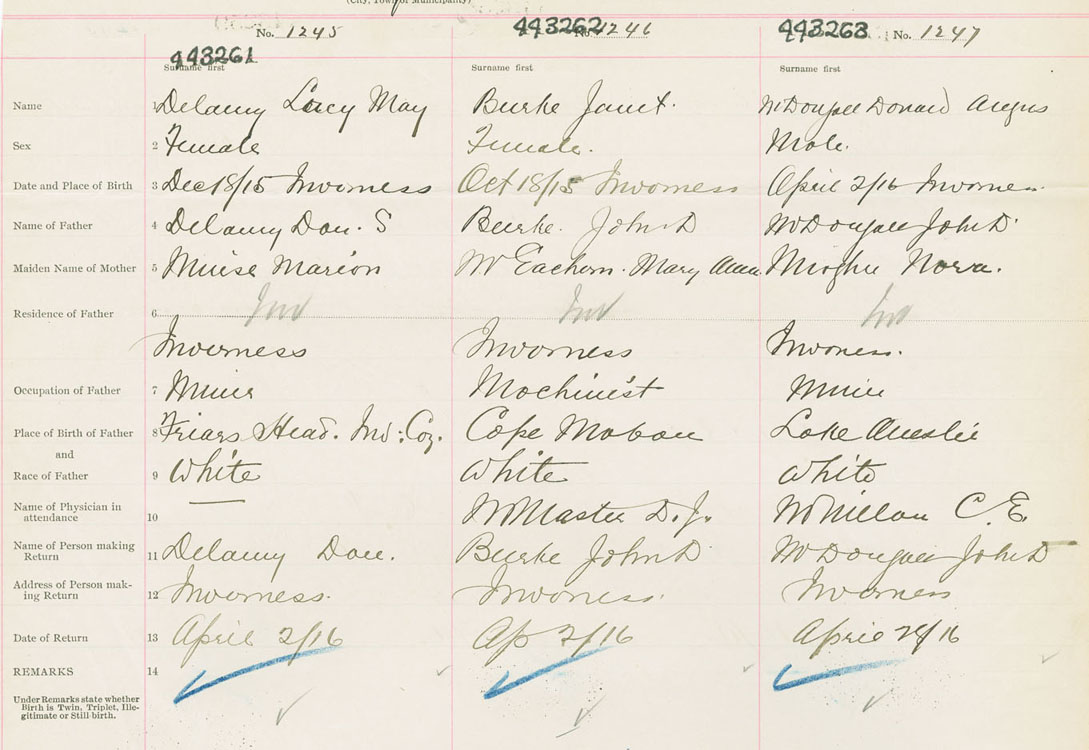 (City, Town or Municipality)
No. 1245 443262 No. 1246 443263 No. 1247
443261
Surname first Surname first Surname first
Name 1 Delamy Lucy May Burke Janet. McDougall Donald Angus
Sex 2 Female Female. Male.
Date and Place of Birth 3 Dec 18/15 Inverness Oct 18/15 Inverness April 2/16 Inverness
Name of Father 4 Delamy Dan. S Burke. John D McDougall John D
Maiden Name of Mother 5 Muise Marion McEachern. Mary Ann Nora.
Residence of Father 6 Inv Inv Inv
Inverness Inverness Inverness.
Occupation of Father 7 Miner Machinist Miner
Place of Birth of Father 8 Friars Head. Inv: Co. Cape Mabou Lake Ainslie
and
Race of Father 9 White White White
Name of Physician in
attendance 10 McMaster D.J. C.E.
Name of Person making
Return 11 Delamy Dan. Burke John D McDougall John D
Address of Person mak-
ing Return 12 Inverness. Inverness. Inverness
Date of Return 13 April 2/16 Ap 2/16 April 28/16
REMARKS 14
Under Remarks state whether
Birth is Twin, Triplet, Ille-
gitimate or Still birth.